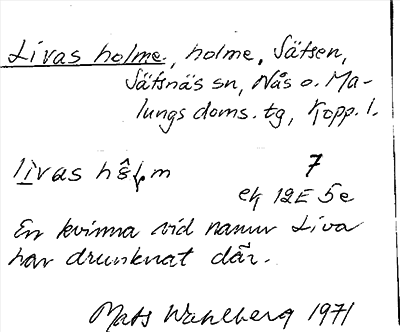 Livas holme, holme, Sätsen,
Sätsnäs sn, Nås o. Ma-
lungs doms. tg, Kopp. l.
7
ek 12E 5e
En kvinna vid namn Liva
har drunknat där.
Mats Wahlberg 1971